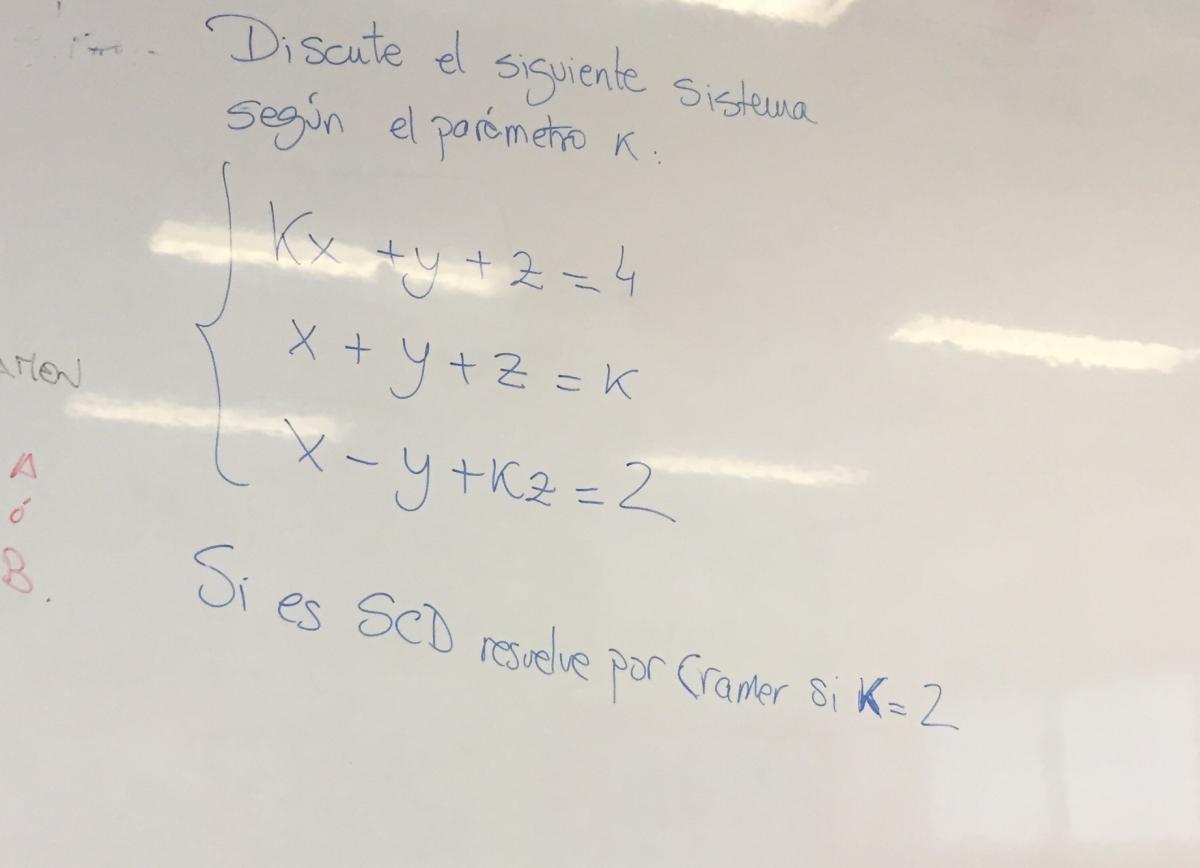 Discute el siguiente sistema
según el parámetro K.
Kx + y + z = 4
x + y + z = K
x - y + Kz = 2
Si es SCD resuelve por Cramer si K = 2
A
ó
B.